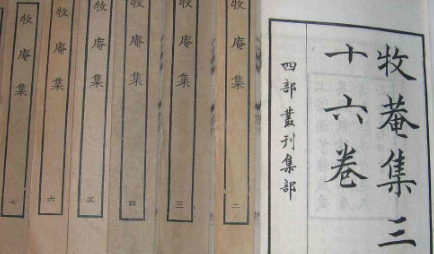 牧菴集三
十六卷
四部叢刊集部
牧庵集 二
牧庵集 三
牧庵集 四
牧庵集 五
牧庵集 六
牧庵集 七